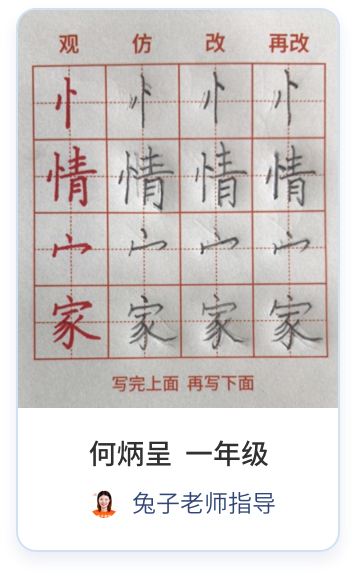 观 仿 改 再改
忄 忄 忄 忄
情 情 情 情
宀 宀 宀 宀
家 家 家 家
写完上面 再写下面
何炳呈 一年级
兔子老师指导